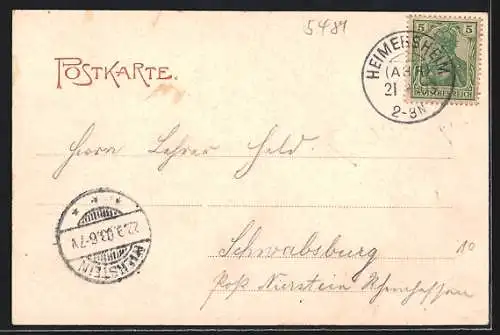 5489
POSTKARTE.
5 5
HEIMERSHEIM
21
2-3N
Herrn Lehrer Held.
22.3.03.6-7V
NIERSTEIN
Schwabsburg
10
Post Nierstein Rheinhessen